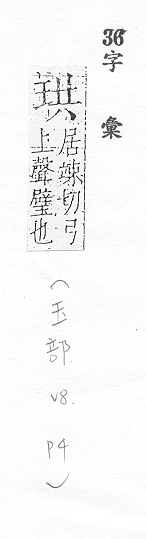 36字彙
珙
居竦切弓
上聲璧也
(玉部 v8. P4)